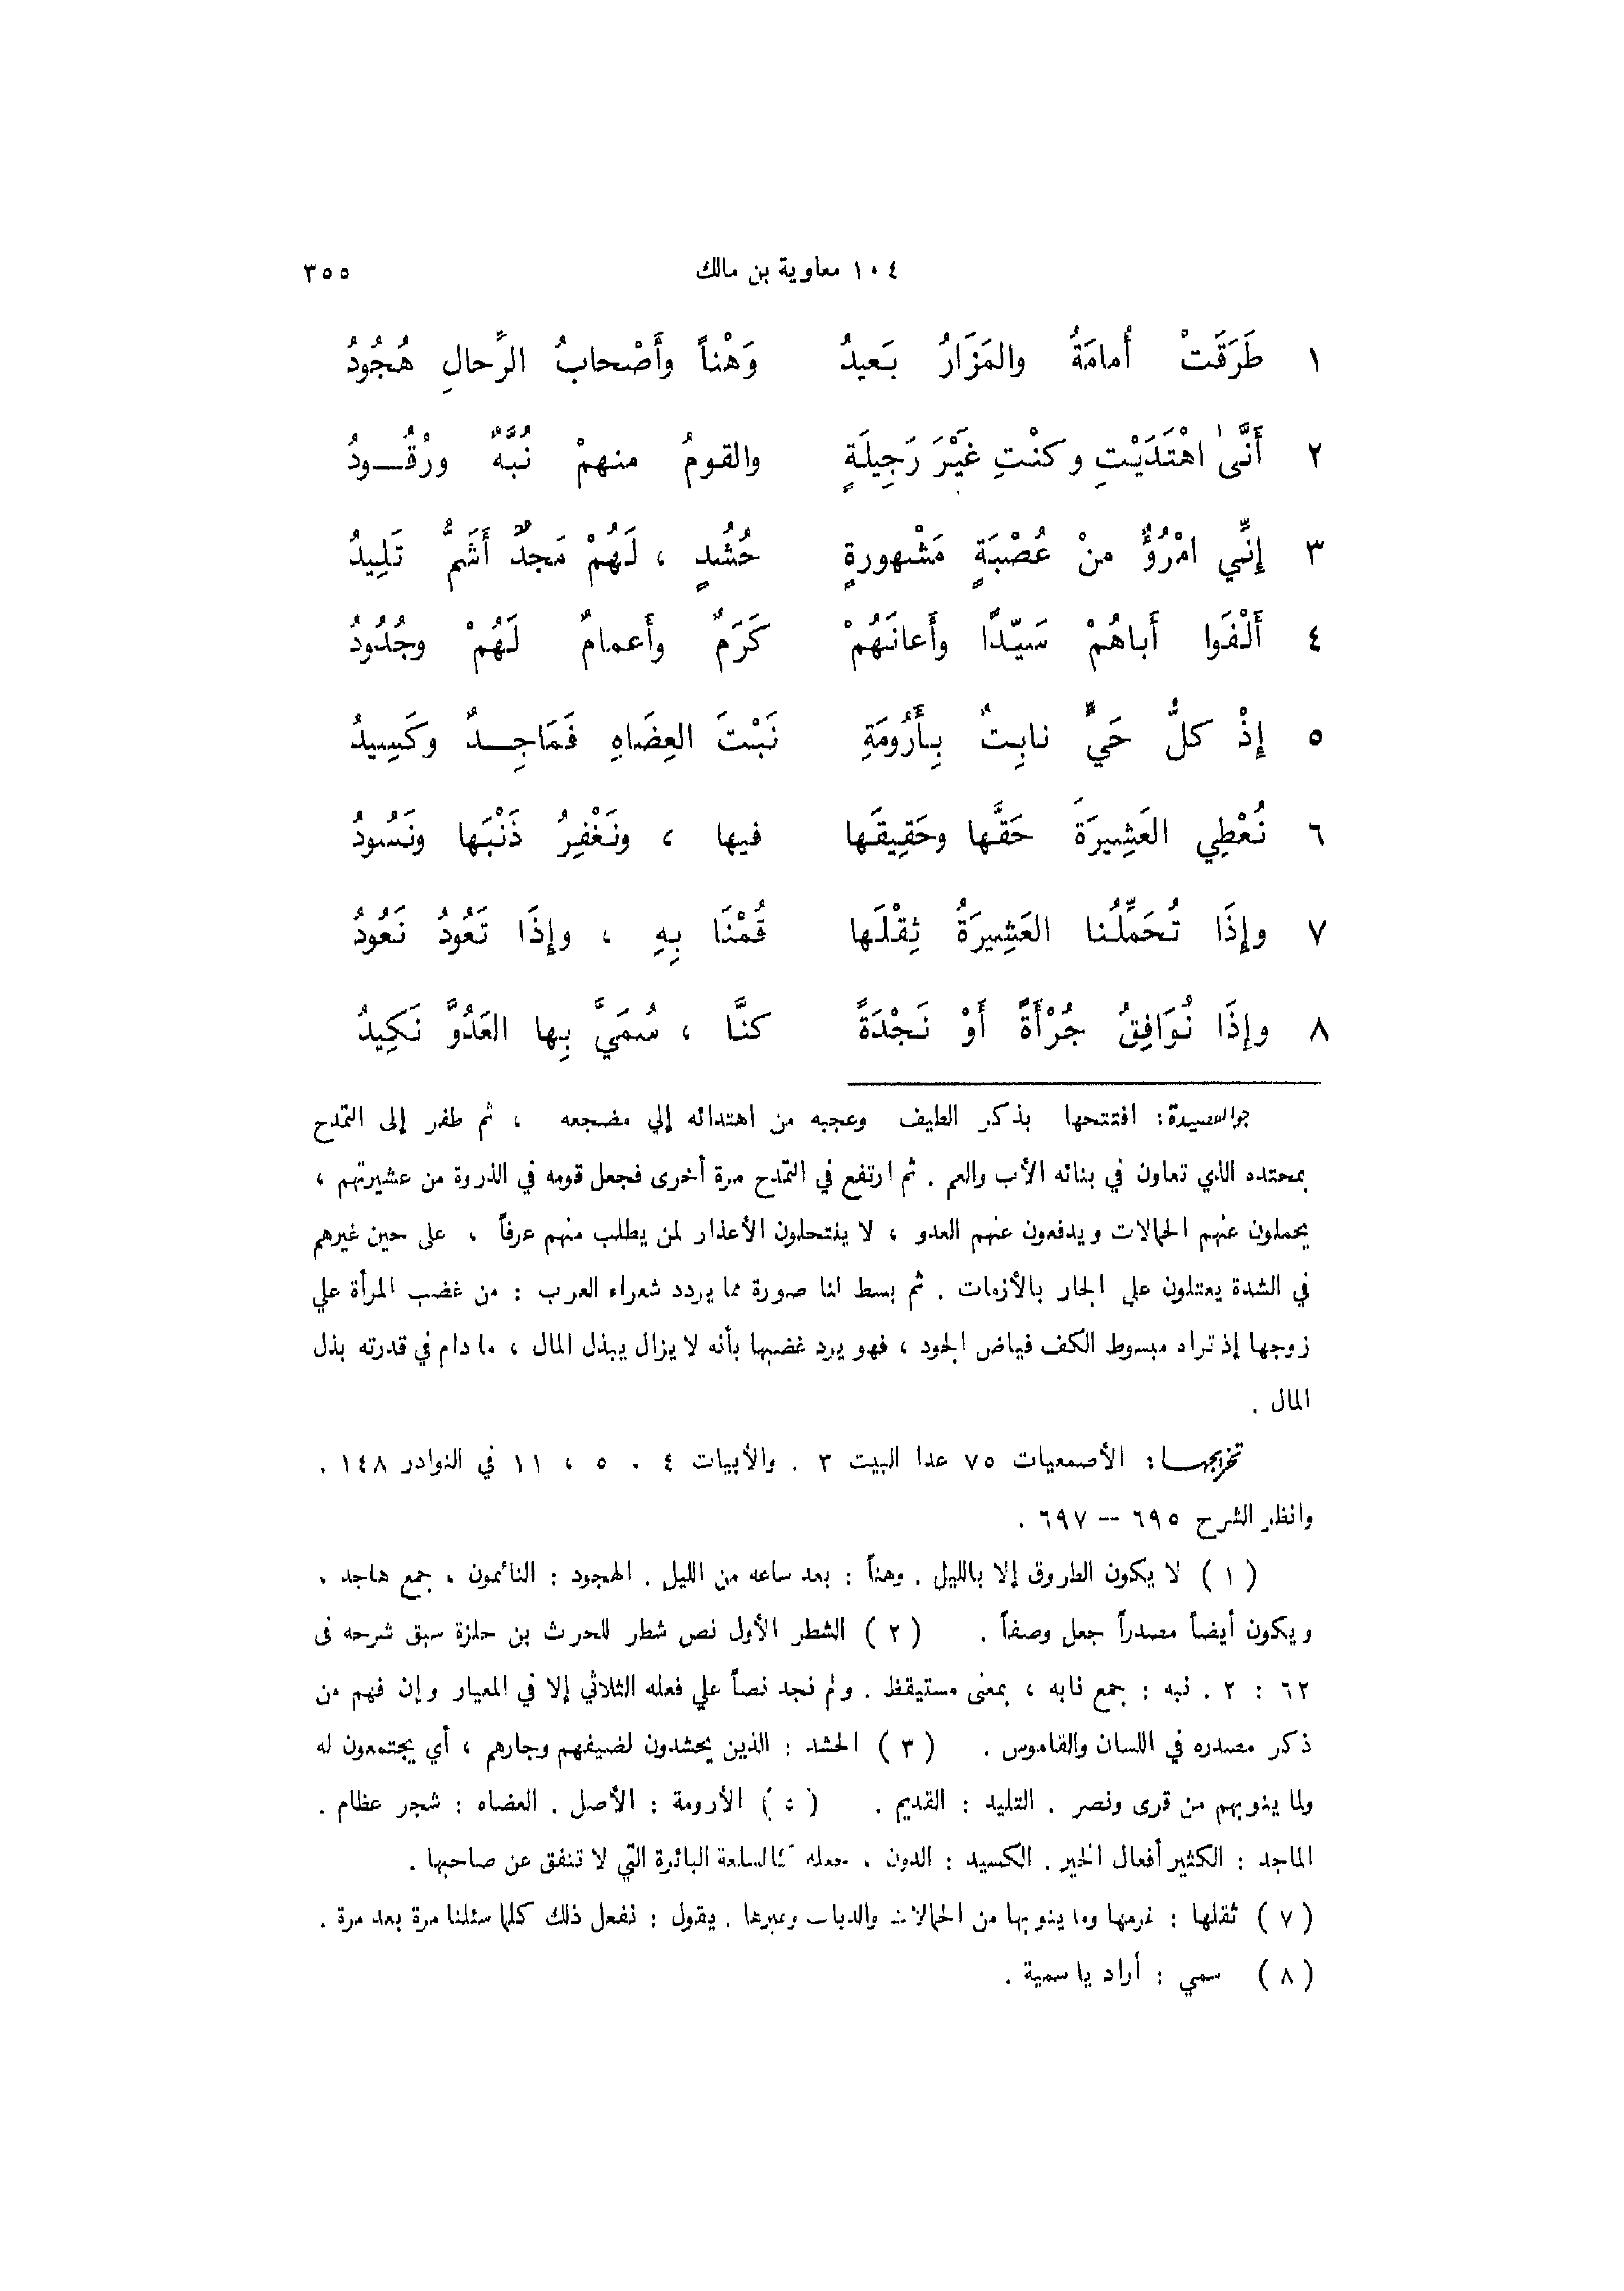 ١٠٤ معاوية بن مالك ٣٥٥
١ طَرَقَتْ أُمامَةُ والمَزَارُ بَعيدُ وَهْناً وأَصْحابُ الرِّحالِ هُجُودُ
٢ أَنَّىٰ اهْتَدَيْتِ وكنْتِ غَيْرَ رَجِيلَةٍ والقومُ منهمْ نُبَّهٌ ورُقُودُ
٣ إِنِّي امْرُؤٌ منْ عُصْبَةٍ مَشْهورةٍ حُشُدٍ ، لَهُمْ مَجدٌ أَشَمُّ تَلِيدُ
٤ أَلْفَوا أَباهُمْ سَيّدًا وأَعانَهُمْ كَرَمٌ وأَعمامٌ لَهُمْ وجُدُودُ
٥ إِذْ كلُّ حَيٍّ نابِتٌ بِأَرُومَةِ نَبْتَ العِضَاهِ فَمَاجِدٌ وكَسِيدُ
٦ نُعْطِي العَشِيرَةَ حَقَّها وحَقِيقَها فيها ، ونَغْفِرُ ذَنْبَها ونَسُودُ
٧ وإِذَا تُحَمِّلُنا العَشِيرَةُ ثِقْلَها قُمْنَا بِهِ ، وإِذَا تَعُودُ نَعُودُ
٨ وإِذَا نُوَافِقُ جُرْأَةً أَوْ نَجْدَةً كنَّا ، سُمَيَّ بِها العَدُوَّ نَكِيدُ
افتتحها بذكر الطيف وعجبه من اهتدائه إلى مضجعه ، ثم طفر إلى التمدح
بمحتده الذي تعاون في بنائه الأب والعم . ثم ارتفع في التمدح مرة أخرى فجعل قومه في الذروة من عشيرتهم ،
يحملون عنهم الحمالات ويدفعون عنهم العدو ، لا ينتحلون الأعذار لمن يطلب منهم عرفاً ، على حين غيرهم
في الشدة يعتلون على الجار بالأزمات . ثم بسط لنا صورة مما يردد شعراء العرب : من غضب المرأة علي
زوجها إذ تراه مبسوط الكف فياض الجود ، فهو يرد غضبها بأنه لا يزال يبذل المال ، ما دام في قدرته بذل
المال .
تخريجها : الأصمعيات ٧٥ عدا البيت ٣ . والأبيات ٤ ، ٥ ، ١١ في النوادر ١٤٨ .
وانظر الشرح ٦٩٥ -- ٦٩٧ .
( ١ ) لا يكون الطروق إلا بالليل . وهناً : بعد ساعه من الليل . الهجود : النائمون ، جمع هاجد ،
ويكون أيضاً مصدراً جعل وصفاً . ( ٢ ) الشطر الأول نص شطر للحرث بن حلزة سبق شرحه فى
٦٢ : ٢ . نبه : جمع نابه ، بمعنى مستيقظ . ولم نجد نصاً علي فعله الثلاثي إلا في المعيار وإن فهم من
ذكر مصدره في اللسان والقاموس . ( ٣ ) الحشد : الذين يحشدون لضيفهم وجارهم ، أي يجتمعون له
ولما ينوبهم من قرى ونصر . التليد : القديم . ( ٥ ) الأرومة : الأصل . العضاه : شجر عظام .
الماجد : الكثير أفعال الخير . الكسيد : الدون ، جعله كالسلعة البائرة التي لا تنفق عن صاحبها .
( ٧ ) ثقلها : غرمها وما ينوبها من الحمالات والديات وغيرها . يقول : نفعل ذلك كلما سئلنا مرة بعد مرة .
( ٨ ) سمي : أراد يا سمية .